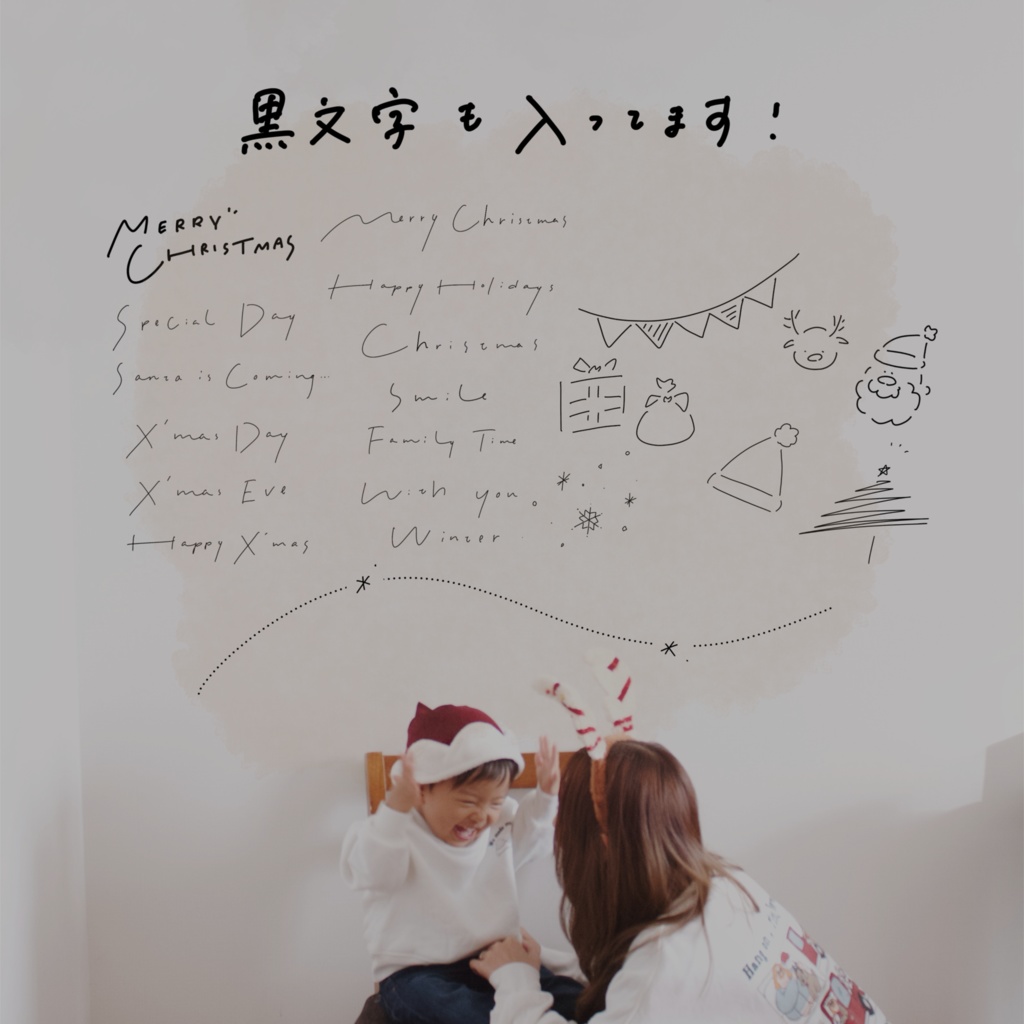 黒文字も入ってます!
MERRY
CHRISTMAS
Special Day
Santa is Coming...
X'mas Day
X'mas Eve
Happy X'mas
Merry Christmas
Happy Holidays
Christmas
Smile
Family Time
With you
Winter